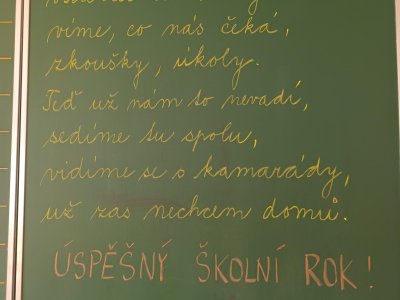 víme, co nás čeká,
zkoušky, úkoly.
Teď už nám to nevadí,
sedíme tu spolu,
vidíme se s kamarády,
už zas nechcem domů.
ÚSPĚŠNÝ ŠKOLNÍ ROK!